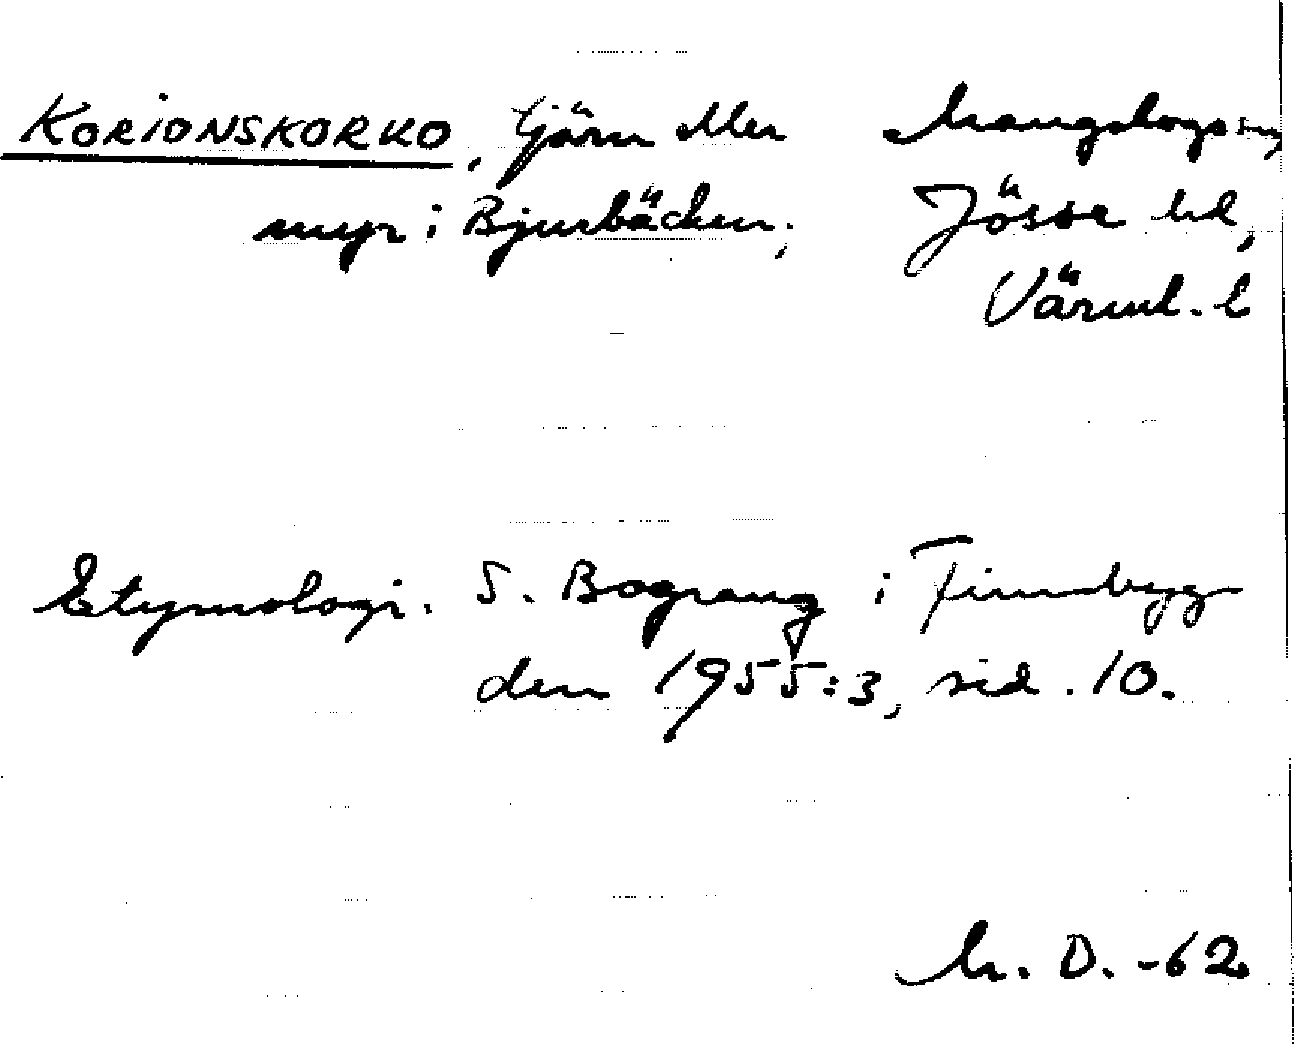 KORIONSKORKO, tjärn eller Mangskogs sn,
myr i Bjurbäcken; Jösse hd,
Värml. l
Etymologi. S. Bograng i Finnbyg
den 1955:3, sid. 10.
M. D. -62